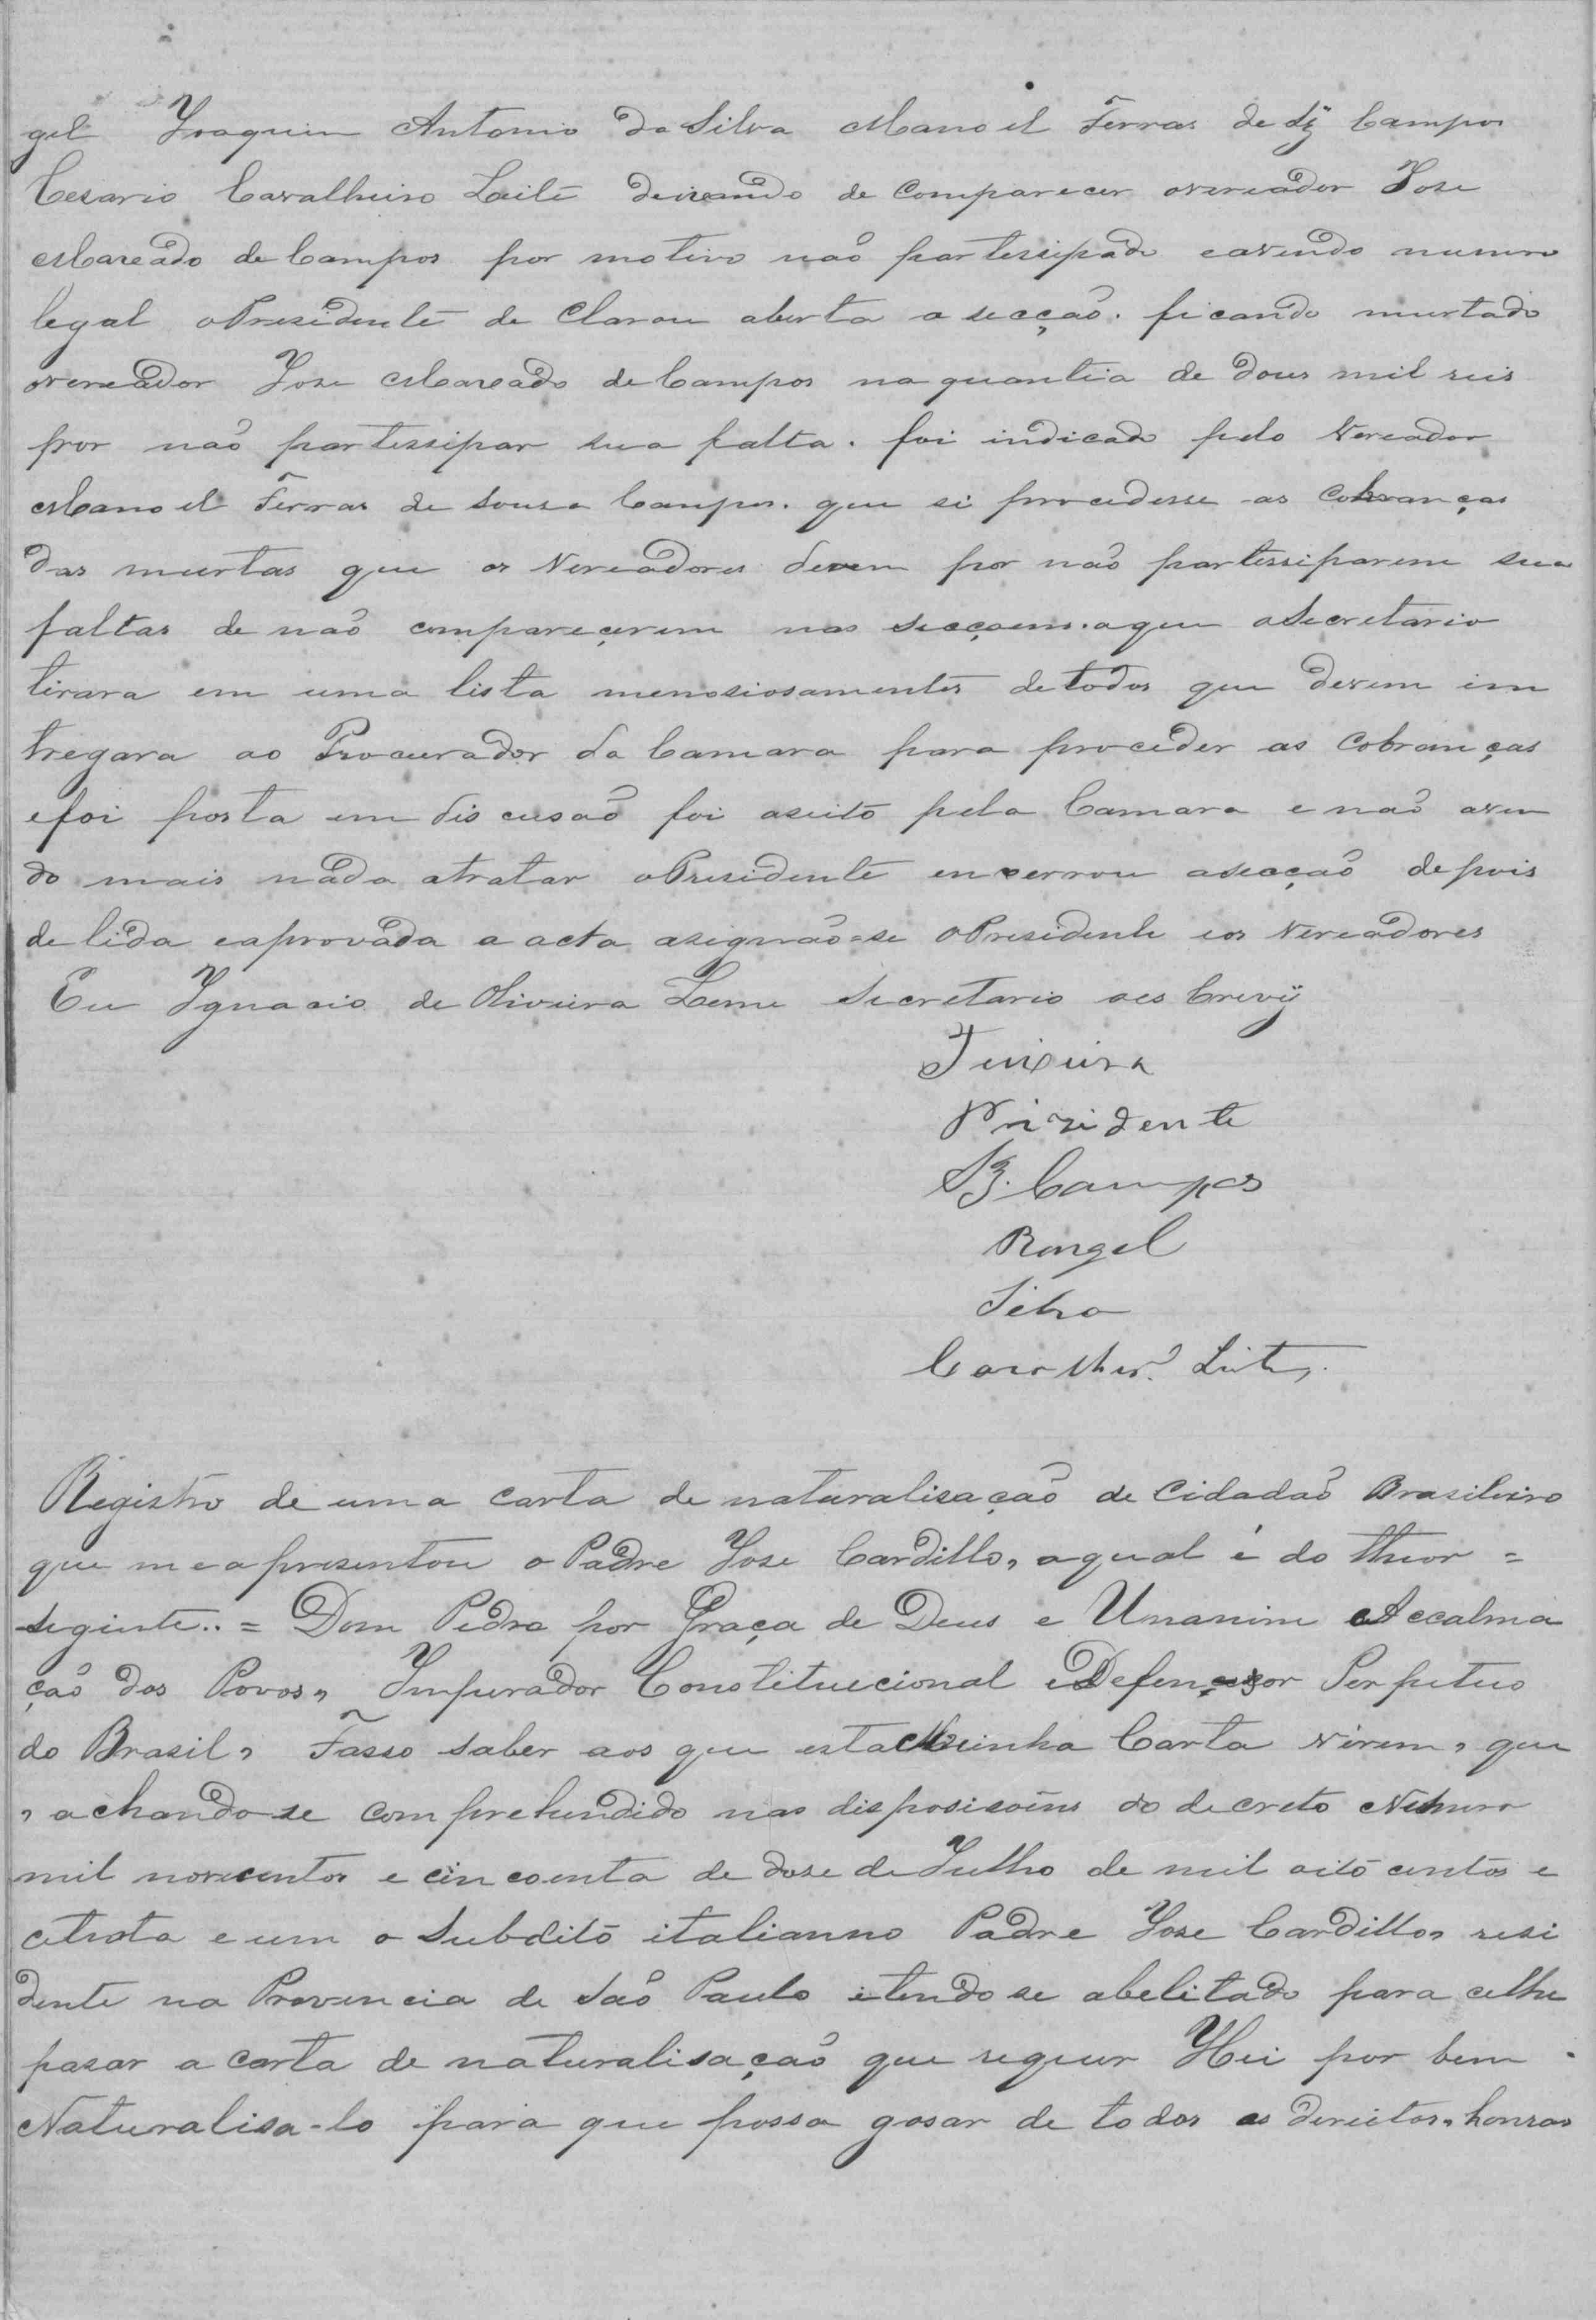 gel Joaquim Antonio da Silva Manoel Ferras de Sz Campos
Cesario Cavalheiro Leite deixando de Comparecer overeador Jose
Maxeado de Campos por motivo naõ partessipado eavendo numero
legal oPresidente de Clarou aberta a secçaõ. ficando murtado
overeador Jose Maxeado de Campos naquantia de dous mil reis
por naõ partessipar sua falta. foi indicado pelo Vereador
Manoel Ferras de Sousa Campos. que si procedesse as Cobranças
das murtas que os Vereadores devem por naõ partessiparem sua
faltas de naõ compareçerem nas secçoens. aque oSecretario
tirara em uma lista menosiosamentes detodos que devem em
tregara ao Procurador da Camara para proceder as Cobranças
efoi posta em discusaõ foi aseito pela Camara e naõ aven
do mais nada atratar oPresidente encerrou asecçaõ depois
de lida eaprovada a acta asignaõ=se oPresidente eos Vereadores
Eu Ygnacio de Oliveira Leme Secretario oes Crevÿ
Teixeira
Prizidente
Sz. Campos
Rangel
Silva
Cavalher.º Leite
Registro de uma carta de naturalisaçaõ de Cidadaõ Brasileiro
que meapresentou o Padre Jose Cardillo, aqual é do theor =
seginte.. = Dom Pedro por Graça de Deus e Unanime Accalma
çaõ dos Povos, Imperador Constitucional eDefençor Perpetuo
do Brasil, Fasso saber aos que esta Minha Carta Virem, que
, achando-se comprehendido nas disposisoins do decreto Numero
mil novecentos e cincoenta de dose de Julho de mil oito centos e
cetenta eum o Subdito italianno Padre Jose Cardillo, resi
dente na Provencia de Saõ Paulo itendose abelitado para celhe
pasar a carta de naturalisaçaõ que requer Hei por bem
Naturalisa-lo para que possa gosar de todos os dereitos, honras